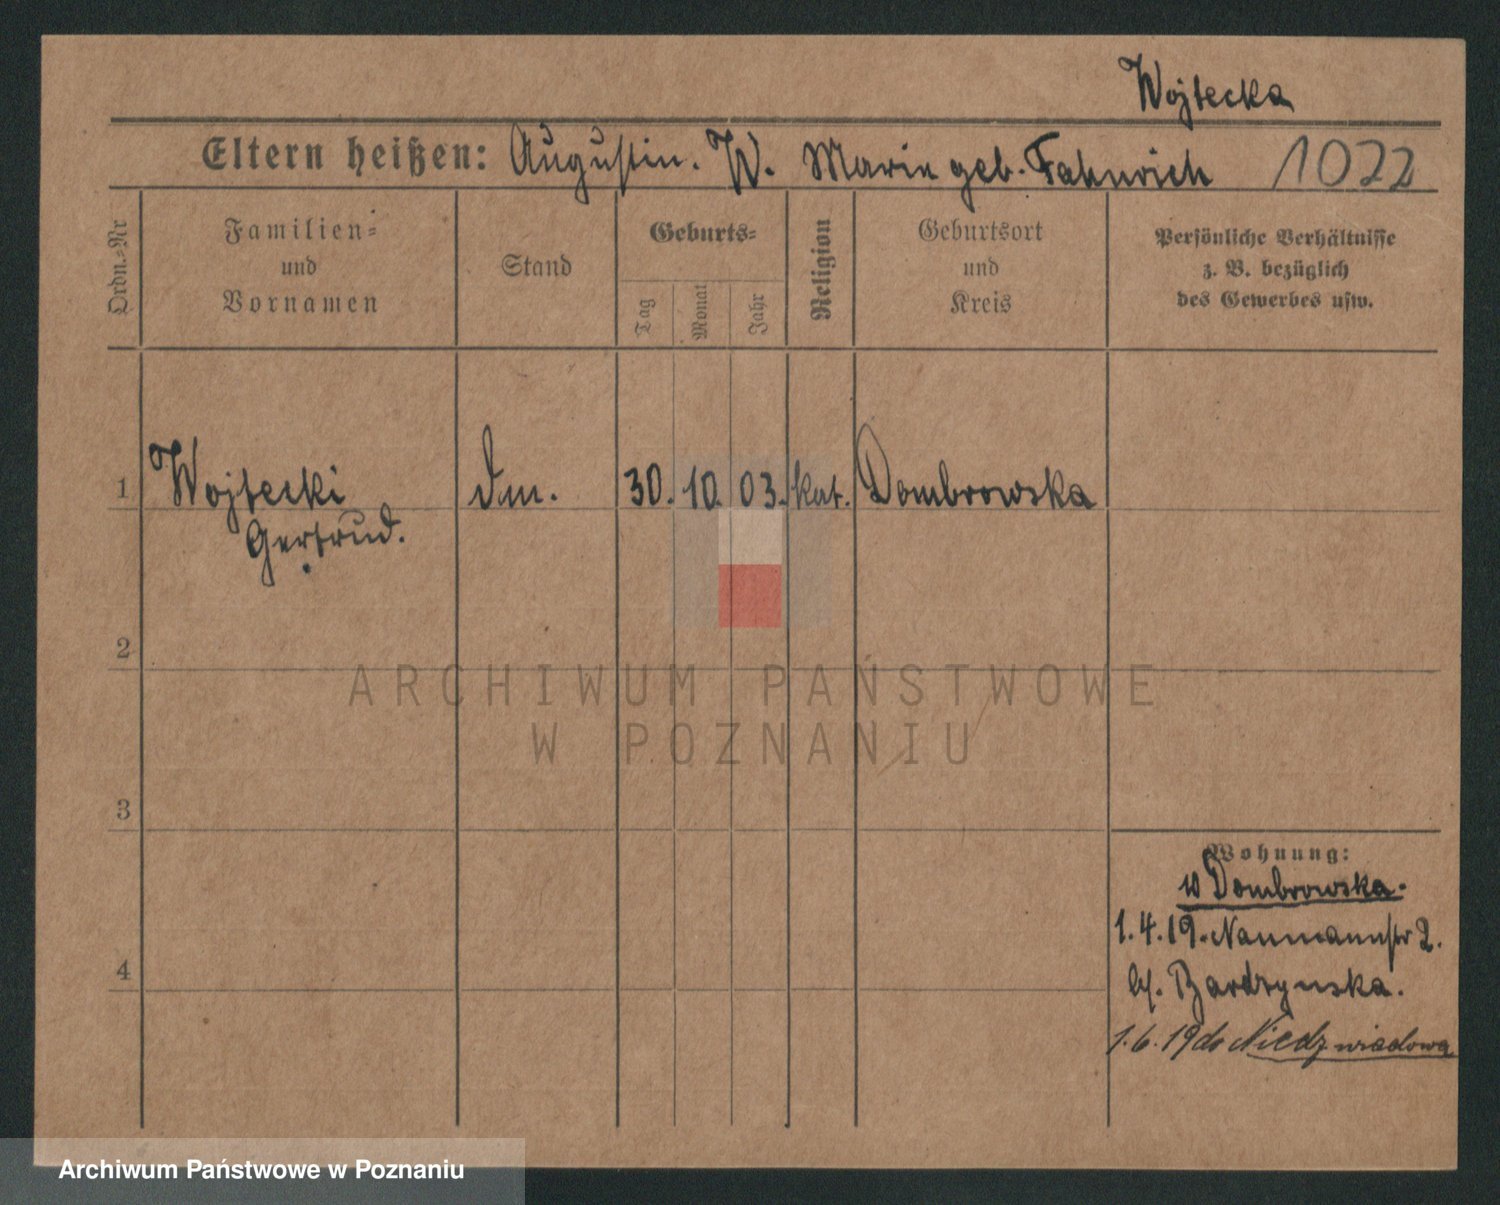 Wojtecka
Eltern heißen: Augustin. W. Marie geb. Fahnrich 1022
Ordn.-Nr
Familien-
und
Vornamen
Stand
Geburts-
Tag
Monat
Jahr
Religion
Geburtsort
und
Kreis
Persönliche Verhältnisse
z. B. bezüglich
des Gewerbes usw.
1 Wojtecki 30. 10. 03. kat. Dombrowska
Gertrud.
2
ARCHIWUM PAŃSTWOWE
W POZNANIU
3
Wohnung:
Dombrowska.
1.4.19. Naumannstr 2.
4
b/. Bardzynska.
1.6.19 do Niedzwiadowa
Archiwum Państwowe w Poznaniu